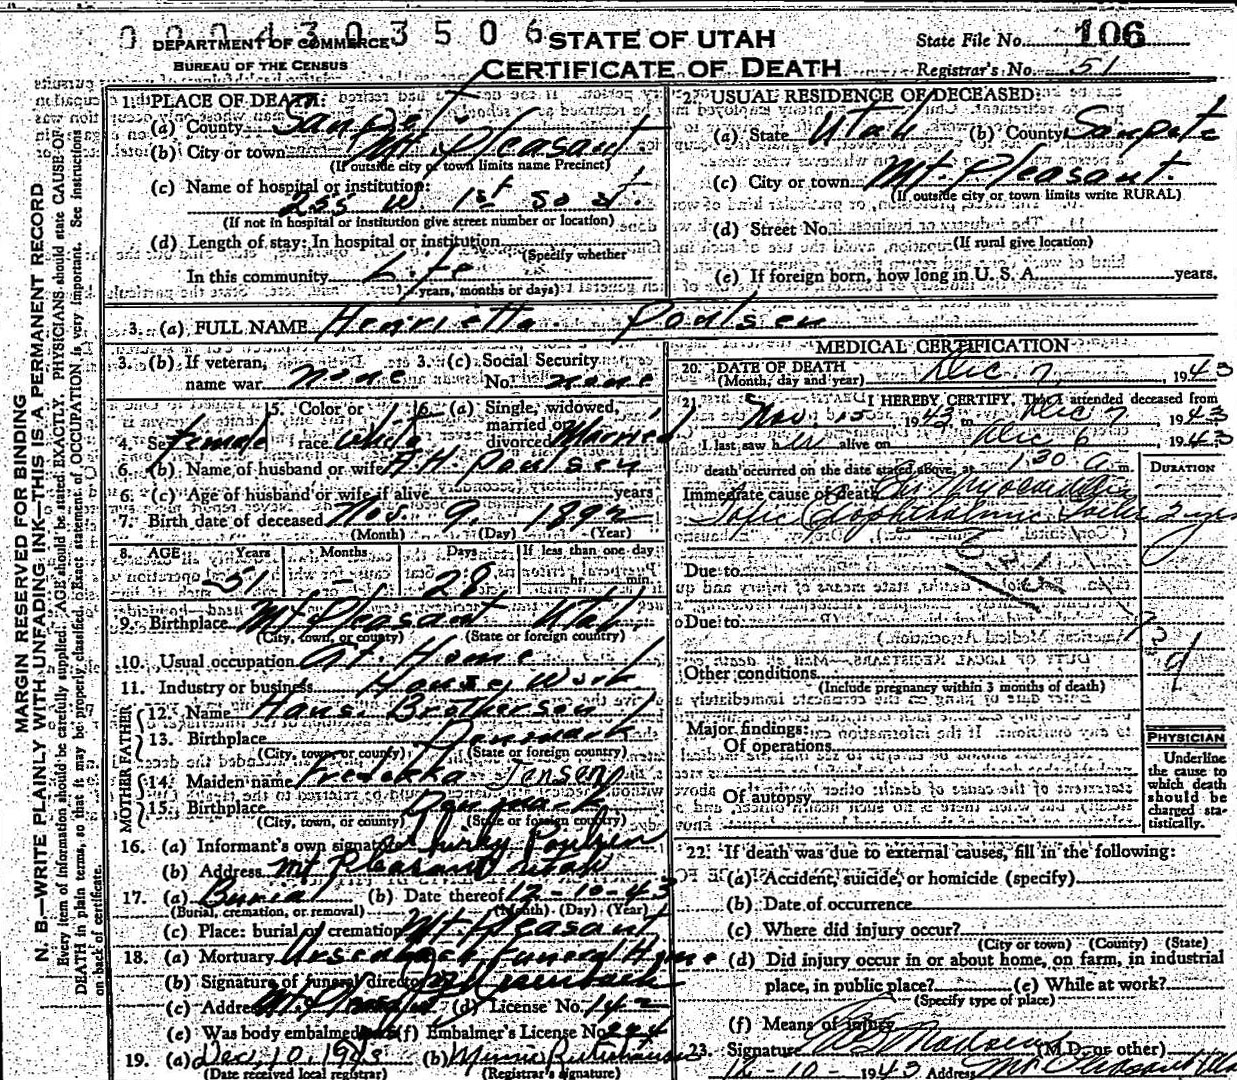 0 0 0 4 3 0 3 5 0 6
DEPARTMENT OF COMMERCE
BUREAU OF THE CENSUS
STATE OF UTAH
CERTIFICATE OF DEATH
State File No. 106
Registrar's No. 51
MARGIN RESERVED FOR BINDING
N. B.—WRITE PLAINLY WITH UNFADING INK—THIS IS A PERMANENT RECORD
Every item of information should be carefully supplied. AGE should be stated EXACTLY. PHYSICIANS should state CAUSE OF
DEATH in plain terms, so that it may be properly classified. Exact statement of OCCUPATION is very important. See instructions
on back of certificate.
1. PLACE OF DEATH:
(a) County Sanpete
(b) City or town Mt. Pleasant
(If outside city or town limits name Precinct)
(c) Name of hospital or institution:
255 W. 1st So st.
(If not in hospital or institution give street number or location)
(d) Length of stay: In hospital or institution
(Specify whether
In this community Life
years, months or days)
2. USUAL RESIDENCE OF DECEASED:
(a) State Utah (b) County Sanpete
(c) City or town Mt. Pleasant.
(If outside city or town limits write RURAL)
(d) Street No.
(If rural give location)
(e) If foreign born, how long in U. S. A. years.
3. (a) FULL NAME Henrietta Poulsen
3. (b) If veteran, name war none
3. (c) Social Security No. none
4. Sex female
5. Color or race white
6. (a) Single, widowed, married or divorced Married
6. (b) Name of husband or wife A.H. Poulsen
6. (c) Age of husband or wife if alive years
7. Birth date of deceased Nov. 9, 1892
(Month) (Day) (Year)
8. AGE Years Months Days If less than one day
51 - 28 hr. min.
9. Birthplace Mt Pleasant Utah
(City, town, or county) (State or foreign country)
10. Usual occupation At Home
11. Industry or business House Work
FATHER
12. Name Hans Brotherson
13. Birthplace Denmark
(City, town or county) (State or foreign country)
MOTHER
14. Maiden name Jensen
15. Birthplace Denmark
(City, town, or county) (State or foreign country)
16. (a) Informant's own signature Shirley Poulsen
(b) Address Mt Pleasant Utah
17. (a) Burial (b) Date thereof 12-10-43
(Burial, cremation, or removal) (Month) (Day) (Year)
(c) Place: burial or cremation Mt Pleasant
18. (a) Mortuary Ursenbach Funeral Home
(b) Signature of funeral director Ursenbach
(c) Address Mt Pleasant (d) License No. 142
(e) Was body embalmed (f) Embalmer's License No.
19. (a) Dec. 10, 1943 (b) Minnie
(Date received local registrar) (Registrar's signature)
MEDICAL CERTIFICATION
20. DATE OF DEATH
(Month, day and year) Dec. 7, 1943
21. I HEREBY CERTIFY, That I attended deceased from
Nov. 15 1943 to Dec 7, 1943
I last saw her alive on Dec 6, 1943
death occurred on the date stated above, at 1:30 a m.
DURATION
Immediate cause of death Myocarditis
Exophthalmic Goiter 2 yrs
Due to
Due to
Other conditions
(Include pregnancy within 3 months of death)
Major findings:
Of operations
Of autopsy
PHYSICIAN
Underline
the cause to
which death
should be
charged sta-
tistically.
22. If death was due to external causes, fill in the following:
(a) Accident, suicide, or homicide (specify)
(b) Date of occurrence
(c) Where did injury occur?
(City or town) (County) (State)
(d) Did injury occur in or about home, on farm, in industrial
place, in public place? (e) While at work?
(Specify type of place)
(f) Means of injury
23. Signature Madsen (M.D. or other)
12-10-1943 Address Mt Pleasant